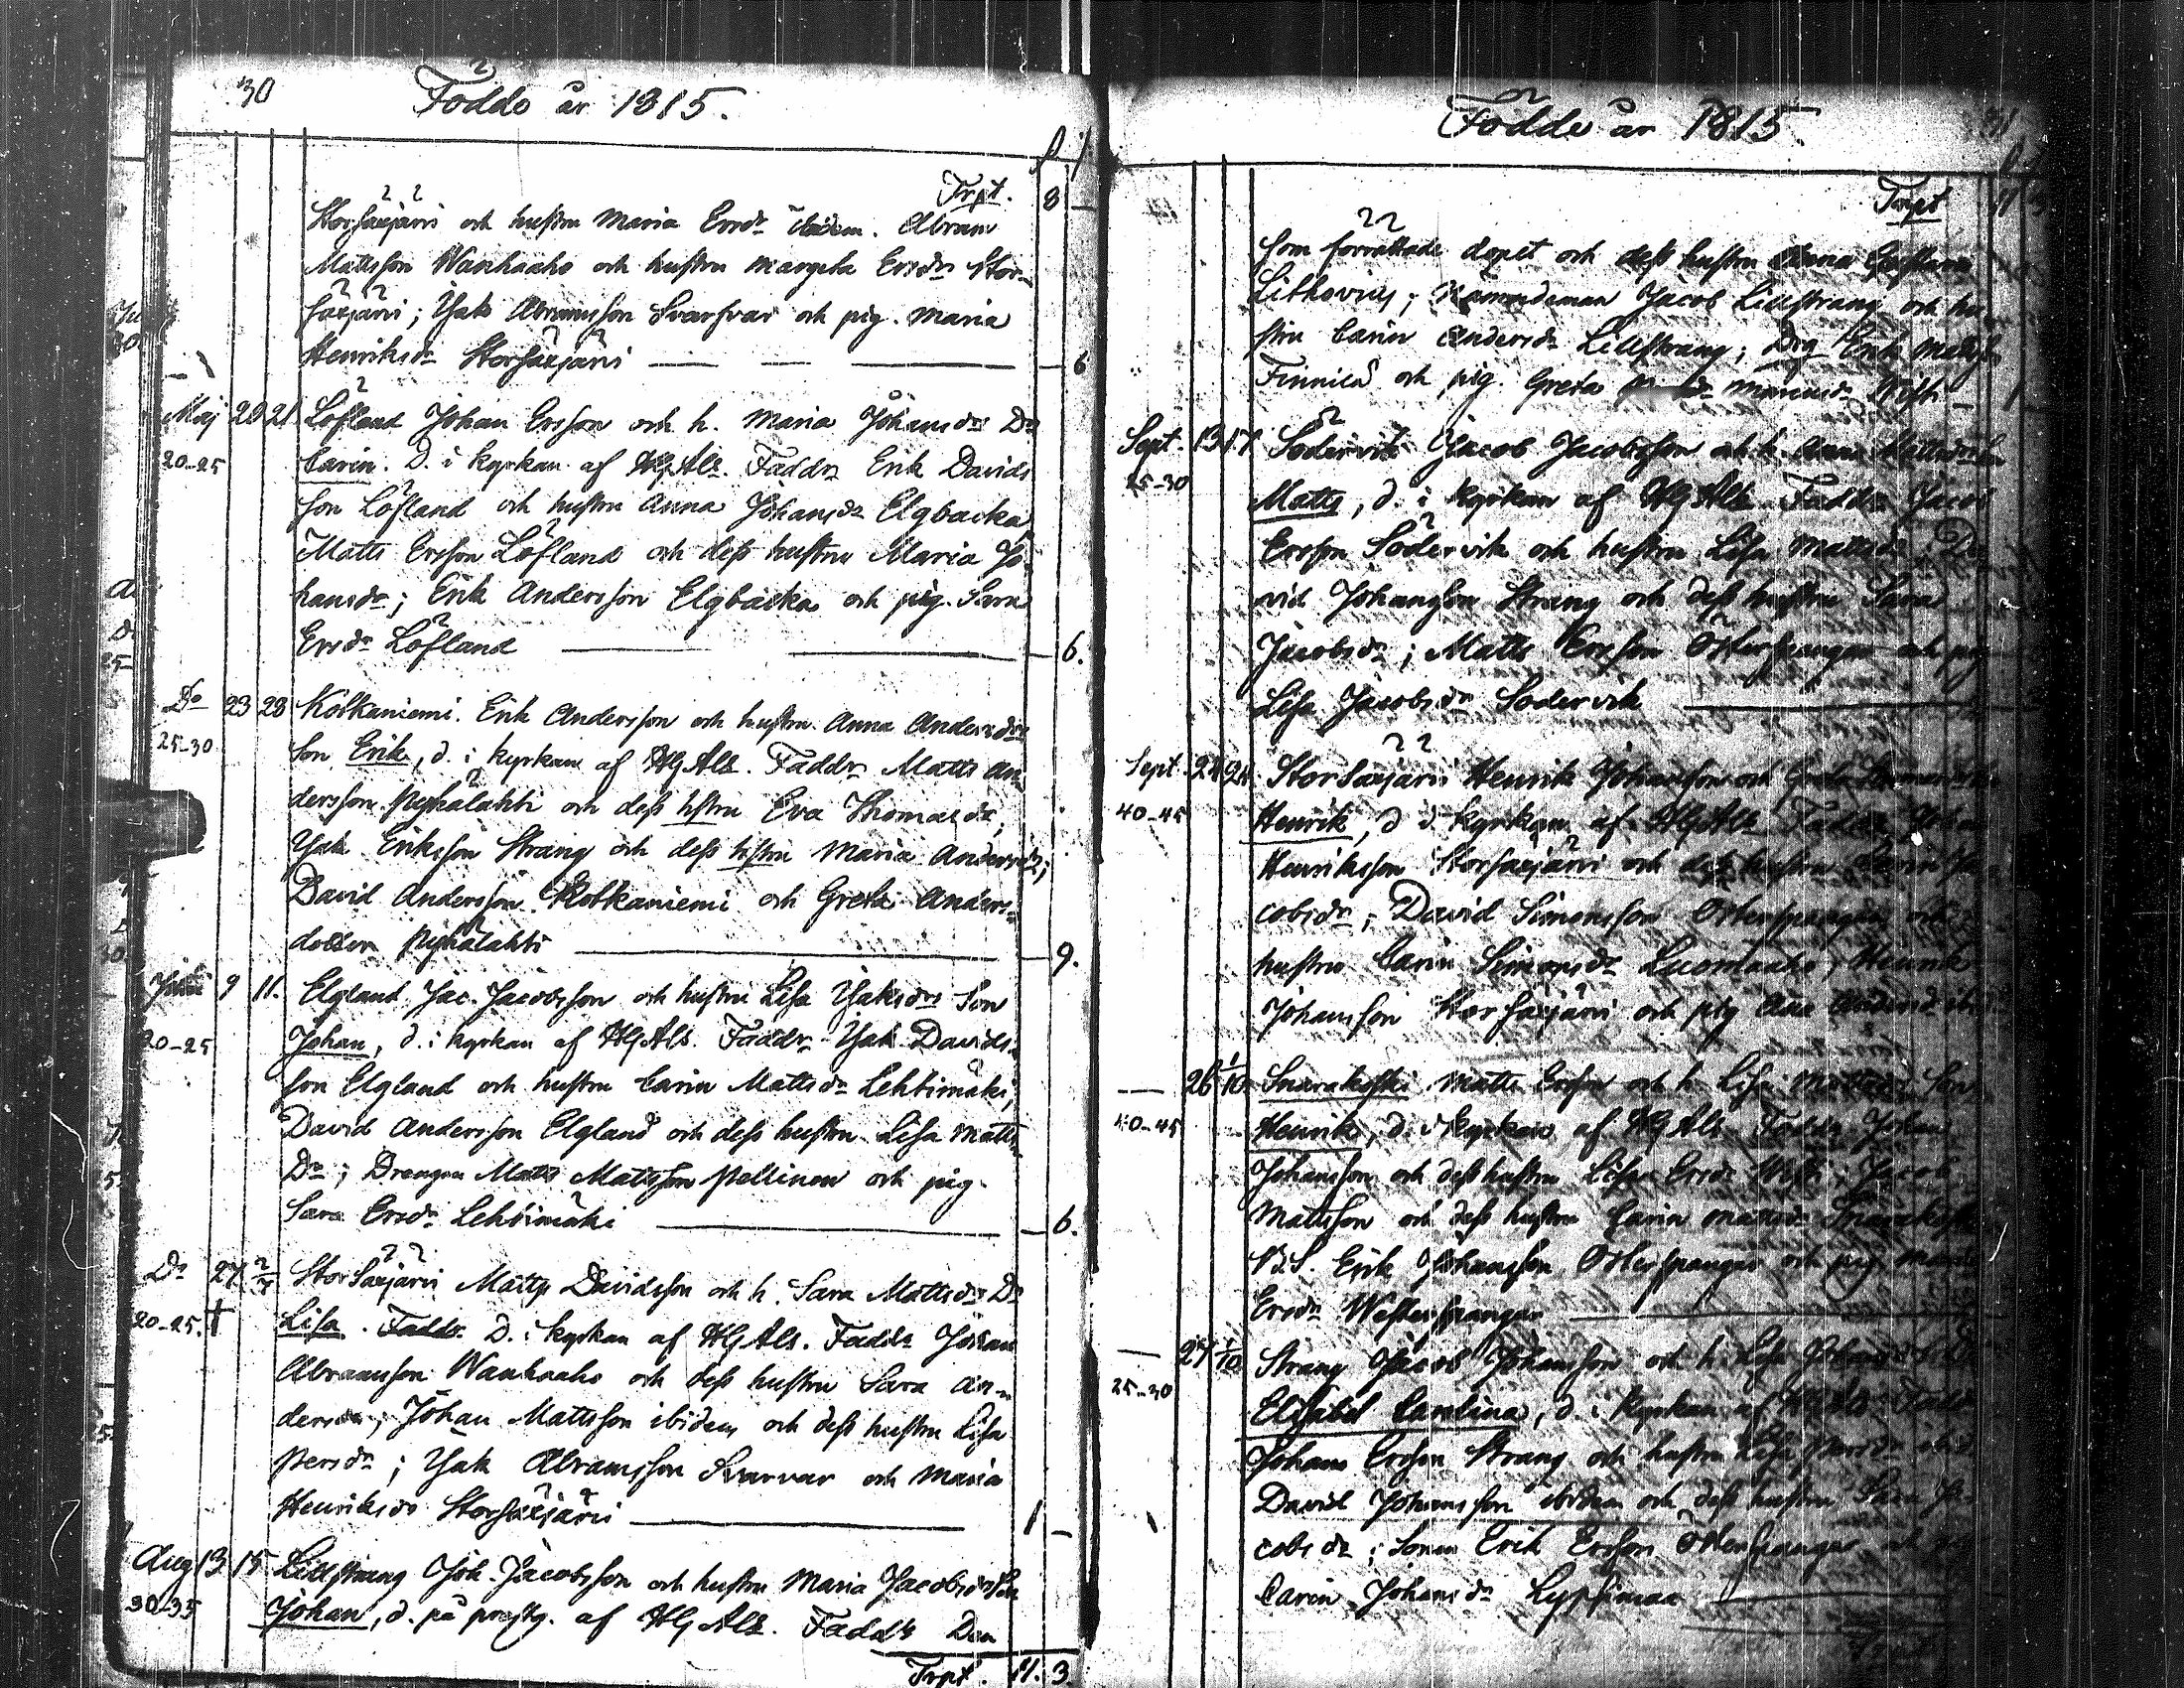 30 Födde år 1815.
Trpt. 8 —
Storsäejärvi och hustru Maria Ersdr ibidem. Abram
Mattsson Wanhaaho och hustru Margeta Ersdr Stor-
säejärvi; Isak Abramsson Svarfvar och pig. Maria
Henriksdr Storsäejärvi — 6
Maij 20 21 Löfland Johan Ersson och h. Maria Johansdr Dr
20-25 Carin. D. i kyrkan af HgAls. Faddr Erik Davids
son Löfland och hustru Anna Johansdr Elgbacka
Matts Ersson Löfland och dess hustru Maria Jo-
hansdr; Erik Andersson Elgbacka och pig. Sara
Ersdr Löfland — 6.
Do 23 28 Kotkaniemi. Erik Andersson och hustru Anna Andersdr
25-30 Son Erik, d. i kyrkan af HgAls. Faddr Matts An
dersson Pyhälahti och dess hstru Eva Thomasdr,
Isak Eriksson Strang och dess hstru Maria Andersdr;
David Andersson Kotkaniemi och Greta Anders-
dotter Pyhälahti — 9.
Juni 9 11. Elgland Jac. Jacobsson och hustru Lisa Isaksdr Son
20-25 Johan, d. i kyrkan af HgAls. Faddr Isak Davids-
son Elgland och hustru Carin Mattsdr Lehtimäki,
David Andersson Elgland och dess hustru Lisa Matts
Dr; Drengen Matts Mattsson Pellinen och pig.
Sara Ersdr Lehtimäki — 6.
Do 27 2/7 Storsäejärvi Matts Davidsson och h. Sara Mattsdr Dr
20-25. † Lisa. Faddr D. i kyrkan af HgAls. Faddr Johan
Abramsson Wanhaaho och dess hustru Sara An-
dersdr; Johan Mattsson ibidem och dess hustru Lisa
Persdr; Isak Abramsson Svarvar och Maria
Henriksdr Storsäejärvi 1 —
Aug 13 15 Lillstrang Joh. Jacobsson och hustru Maria Jacobsdr Son
30-35 Johan, d. på prestg. af HgAls. Faddr Den
Trpt. 11. 3.
Födde år 1815. 31
Trpt 11 3
som förrättade dopet och dess hustru Anna
Lithovius; Nämndeman Jacob Lillstrang och hu
stru Carin Andersdr Lillstrang; Drg Erik Matts
Finnilä och pig. Greta — 1
Sept. 13 17 Södervik Jacob Jacobsson och h. Anna Mattsdr Son
25-30 Matts, d. i kyrkan af HgAls. Faddr Jacob
Ersson Södervik och hustru Lisa Mattsdr; Da
vid Johansson Strang och dess hustru Sara
Jacobsdr; Matts Ersson Österspangar och pig
Lisa Jacobsdr Södervik
Sept. 24 24 Storsäejärvi Henrik Johansson och Greta
40-45 Henrik, d i kyrkan af HgAls Faddr
Henriksson Storsäejärvi och dess hustru Carin Ja
cobsdr; David Simonsson Österspangar och
hustru Carin Simonsdr Luomaaho; Henrik
Johansson Storsäejärvi och pig
— 26 1/10 Snarakoski Matts Ersson och h. Lisa Son
40-45 Henrik, d. i kyrkan af HgAls Faddr Johan
Johansson och dess hustru Lisa Ersdr; Jacob
Mattsson och dess hustru Carin
Erik Johansson Österspangar och pig Maria
Ersdr Westerspangar
— 27 1/10 Strang Jacob Johansson och h. Lisa
25-30 Elisabet Carolina, d. i kyrkan af HgAls Faddr
Johan Ersson Strang och hustru Lisa Persdr
David Johansson ibidem och dess hustru Sara Ja
cobsdr; Sonen Erik Ersson Österspangar och
Carin Johansdr Lypsimaa